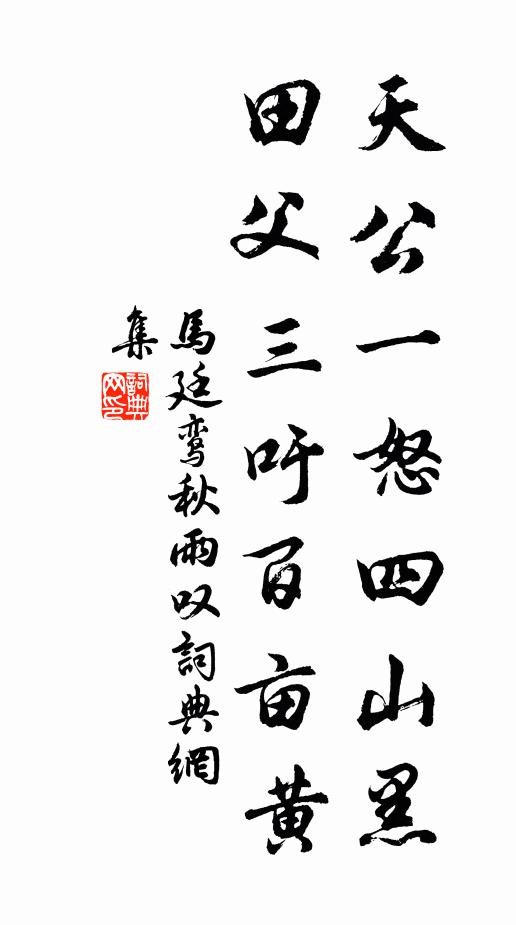 天公一怒四山黑
田父三吁百亩黄
馬廷鸾秋雨叹詞典網
集
詞典
网印